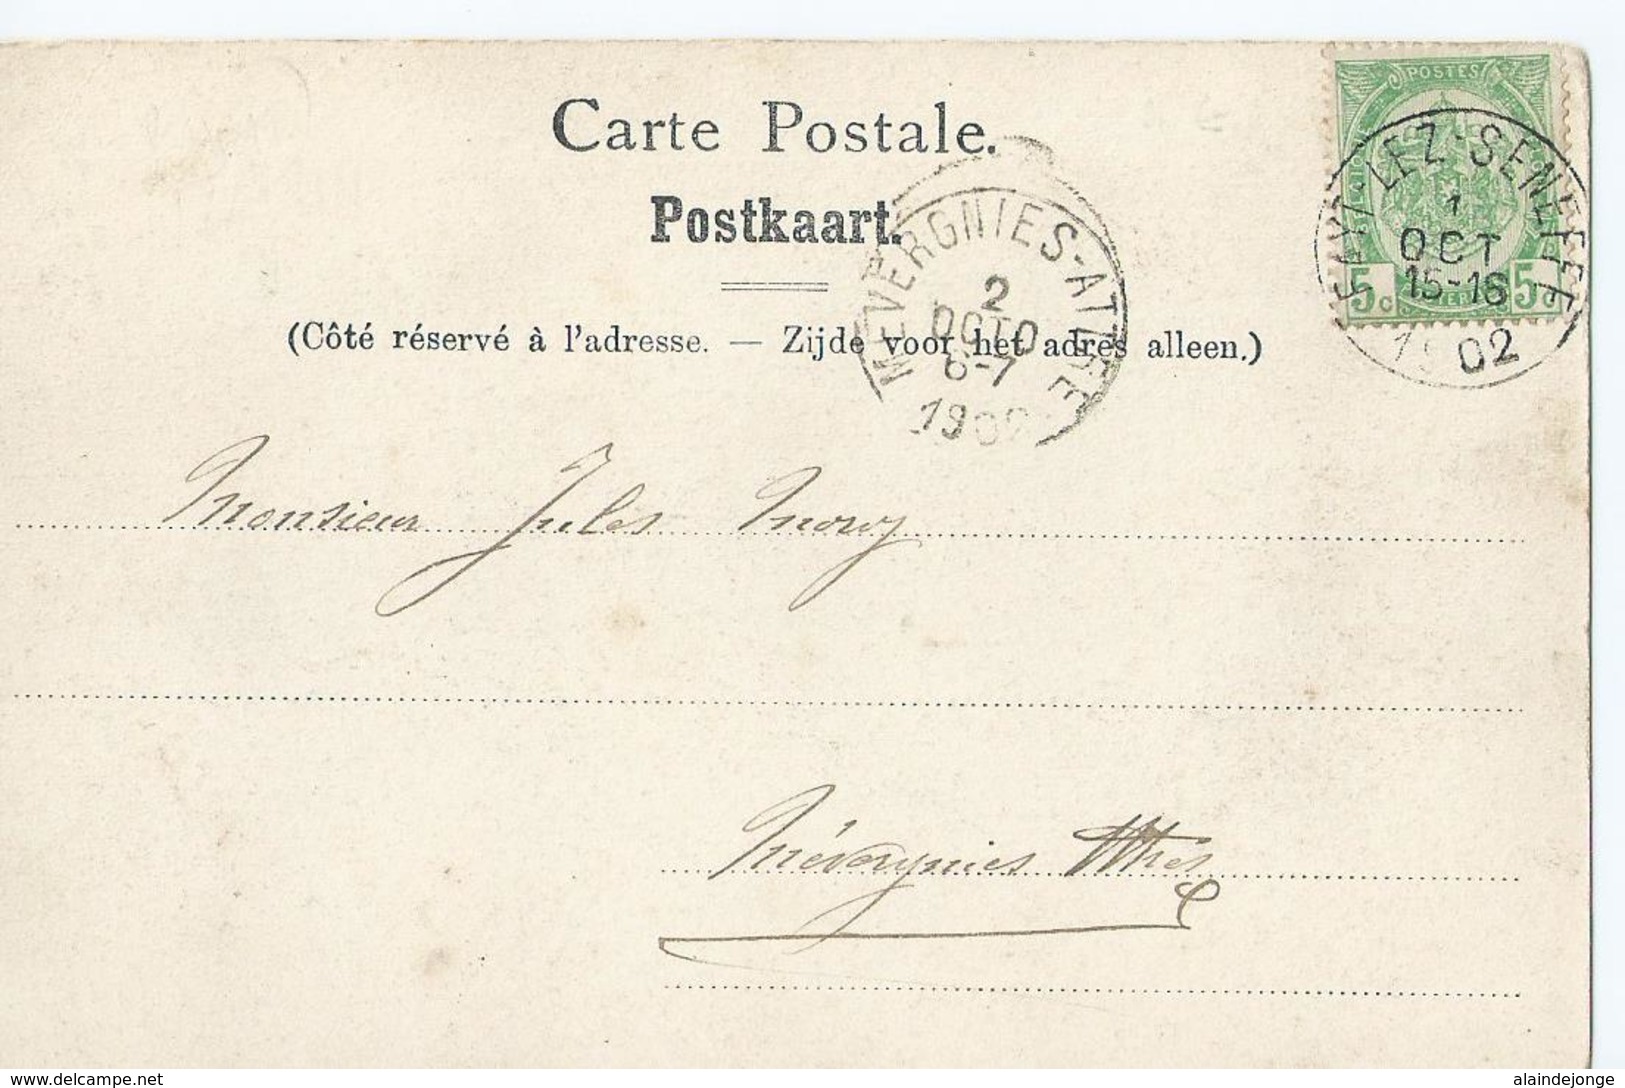 Carte Postale.
Postkaart.
(Côté réservé à l'adresse. — Zijde voor het adres alleen.)
POSTES
5c 5c
FAYT-LEZ-SENEFFE
1
OCT
15-16
1902
MEVERGNIES-ATTRE
2
OCTO
6-7
1902
Monsieur Jules
Mévergnies
delcampe.net
alaindejonge